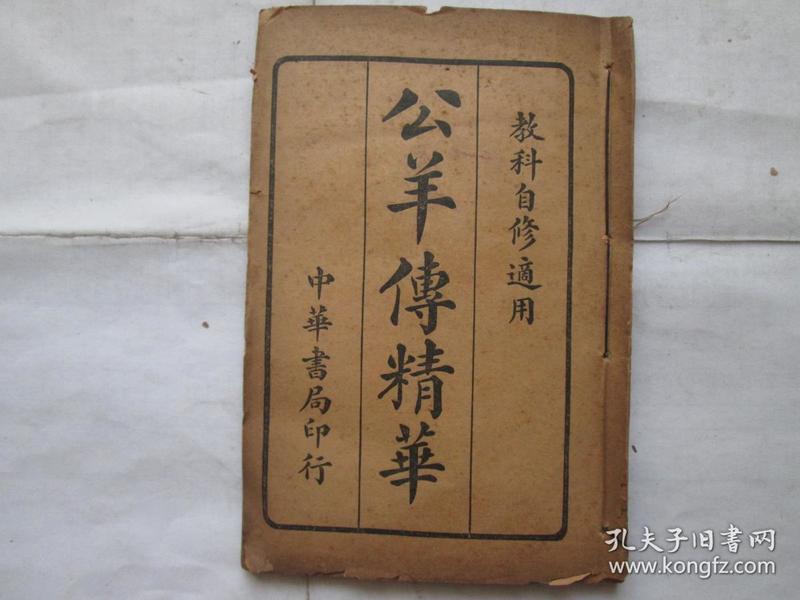 教科自修適用
公羊傳精華
中華書局印行
孔夫子旧書网
www.kongfz.com